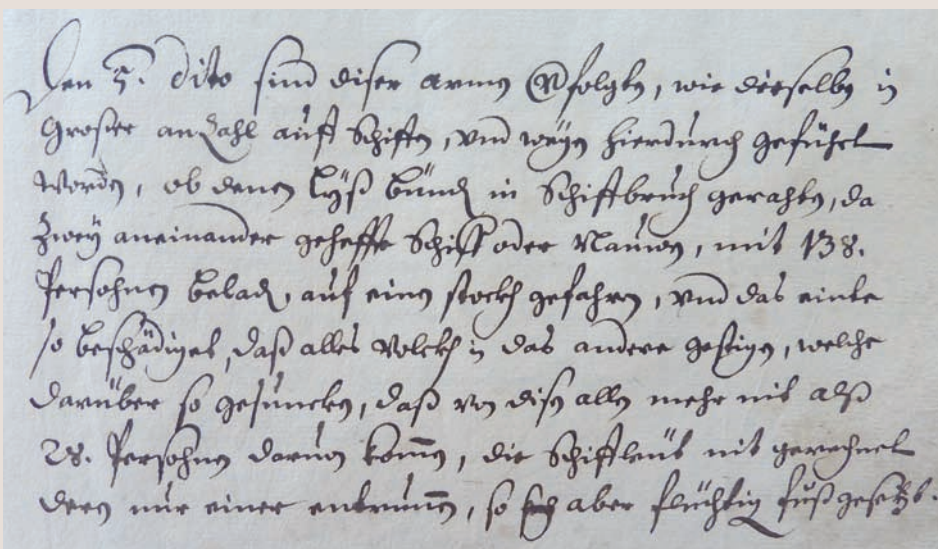 Den 5. dito sind diser armen Gfolgte, wie dieselbe in
Grosser anzahl auff Schiffen, vnd wägen hierdurch geführt
worden, ob denen in Schiffbruch gerahten, da
Zwey aneinander geheffte Schiff oder Nauwen, mit 138.
Persohnen beladen, auf einen stockh gefahren, vnd das einte
so beschädiget, daß alles Volckh in das andere gestigen, welche
darüber so gesuncken, daß von disen allen mehr nit alß
28. Persohnen daruon kommen, die Schiffleüt nit gerechnet
deren nur einer entrunnen, so aber flüchtig fuß gesetzt.